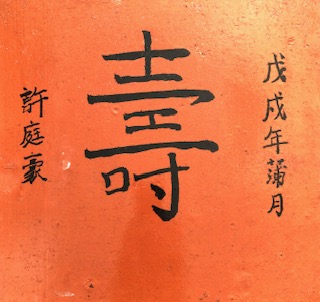 戊戌年蒲月
壽
許庭豪